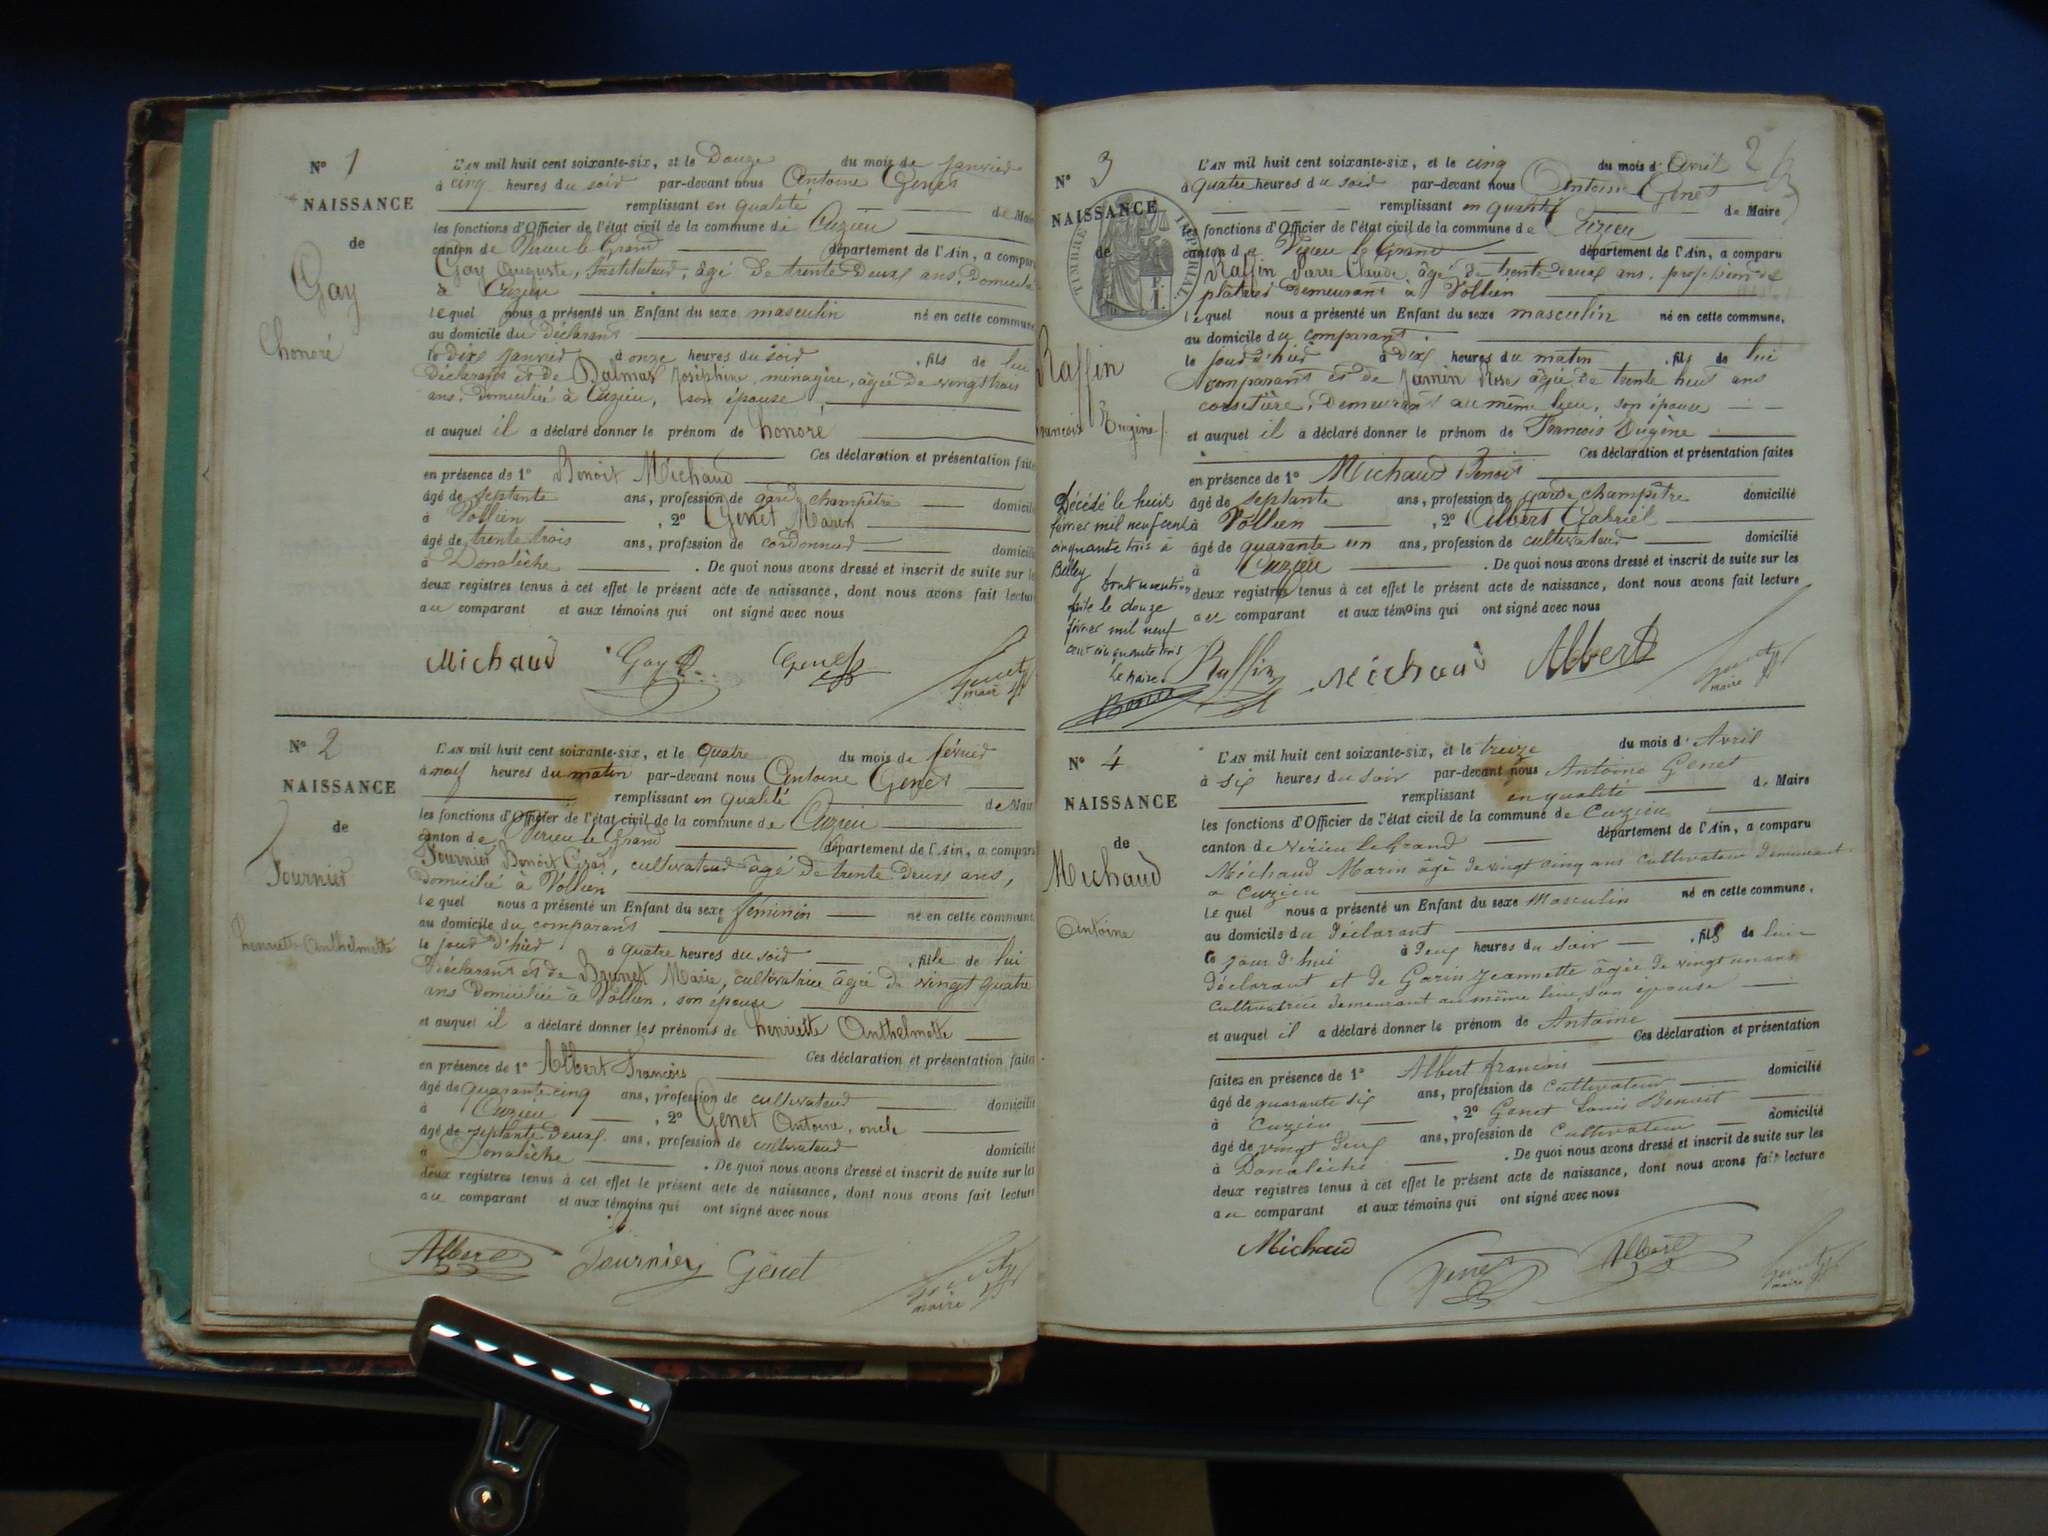 N° 1
NAISSANCE
de
Gay
honoré
L'AN mil huit cent soixante-six, et le Douze du mois de janvier
à cinq heures du soir par-devant nous Antoine Genet
remplissant en qualité de Maire
les fonctions d'Officier de l'état civil de la commune de Cuzieu
canton de Virieu le Grand département de l'Ain, a comparu
Gay Auguste, Instituteur, âgé de trente Deux ans, Domicilié
à Cuzieu
lequel nous a présenté un Enfant du sexe masculin né en cette commune
au domicile du Déclarant
le dix janvier à onze heures du soir, fils de lui
Déclarant et de Dalmas Joséphine, ménagère, âgée de vingt trois
ans, Domiciliée à Cuzieu, son épouse,
et auquel il a déclaré donner le prénom de honoré
Ces déclaration et présentation faites
en présence de 1° Benoît Michaud
âgé de septante ans, profession de garde champêtre domicilié
à Vollien, 2° Genet Marin
âgé de trente trois ans, profession de cordonnier domicilié
à Donalèche. De quoi nous avons dressé et inscrit de suite sur les
deux registres tenus à cet effet le présent acte de naissance, dont nous avons fait lecture
au comparant et aux témoins qui ont signé avec nous
Michaud Gay A. Genet Genet
maire
N° 2
NAISSANCE
de
Fournier
henriette Anthelmette
L'AN mil huit cent soixante-six, et le quatre du mois de février
à neuf heures du matin par-devant nous Antoine Genet
remplissant en qualité de Maire
les fonctions d'Officier de l'état civil de la commune de Cuzieu
canton de Virieu le Grand département de l'Ain, a comparu
Fournier Benoît, cultivateur âgé de trente Deux ans,
domicilié à Vollien
lequel nous a présenté un Enfant du sexe féminin né en cette commune
au domicile du comparant
le jour d'hier à quatre heures du soir, fille de lui
Déclarant et de Brunet Marie, cultivatrice âgée de vingt quatre
ans Domiciliée à Vollien, son épouse
et auquel il a déclaré donner les prénoms de henriette Anthelmette
Ces déclaration et présentation faites
en présence de 1° Albert François
âgé de quarante cinq ans, profession de cultivateur domicilié
à Cuzieu, 2° Genet Antoine, oncle
âgé de septante deux ans, profession de cultivateur domicilié
à Donalèche. De quoi nous avons dressé et inscrit de suite sur les
deux registres tenus à cet effet le présent acte de naissance, dont nous avons fait lecture
au comparant et aux témoins qui ont signé avec nous
Albert Fournier Genet Genet
maire
2
N° 3
NAISSANCE
de
TIMBRE IMPERIAL
Raffin
François Eugène
L'AN mil huit cent soixante-six, et le cinq du mois d'Avril
à quatre heures du soir par-devant nous Antoine Genet
remplissant en qualité de Maire
les fonctions d'Officier de l'état civil de la commune de Cuzieu
canton de Virieu le Grand département de l'Ain, a comparu
Raffin Pierre Claude, âgé de trente deux ans, profession de
plâtrier demeurant à Vollien
lequel nous a présenté un Enfant du sexe masculin né en cette commune,
au domicile du comparant.
le jour d'hier à dix heures du matin, fils de lui
comparant et de Jamin Rose âgée de trente huit ans
corsetière, Demeurant au même lieu, son épouse
et auquel il a déclaré donner le prénom de François Eugène
Ces déclaration et présentation faites
en présence de 1° Michaud Benoit
âgé de septante ans, profession de garde champêtre domicilié
à Vollien, 2° Albert Gabriel
âgé de quarante un ans, profession de cultivateur domicilié
à Cuzieu. De quoi nous avons dressé et inscrit de suite sur les
deux registres tenus à cet effet le présent acte de naissance, dont nous avons fait lecture
au comparant et aux témoins qui ont signé avec nous
Décédé le huit
février mil neuf cent
cinquante trois à
Belley dont mention
faite le douze
février mil neuf
cent cinquante trois
Le Maire
Raffin Michaud Albert Genet
maire
N° 4
NAISSANCE
de
Michaud
Antoine
L'AN mil huit cent soixante-six, et le treize du mois d'Avril
à six heures du soir par-devant nous Antoine Genet
remplissant en qualité de Maire
les fonctions d'Officier de l'état civil de la commune de Cuzieu
canton de Virieu le Grand département de l'Ain, a comparu
Michaud Marin âgé de vingt cinq ans cultivateur demeurant
a Cuzieu
lequel nous a présenté un Enfant du sexe Masculin né en cette commune,
au domicile du Déclarant
le jour d'hui à Deux heures du soir, fils de lui
déclarant et de Garin Jeannette âgée de vingt un ans
cultivatrice demeurant au même lieu, son épouse
et auquel il a déclaré donner le prénom de Antoine
Ces déclaration et présentation
faites en présence de 1° Albert françois
âgé de quarante six ans, profession de cultivateur domicilié
à Cuzieu, 2° Genet Louis Benoit
âgé de vingt deux ans, profession de cultivateur domicilié
à Donalèche. De quoi nous avons dressé et inscrit de suite sur les
deux registres tenus à cet effet le présent acte de naissance, dont nous avons fait lecture
au comparant et aux témoins qui ont signé avec nous
Michaud Genet Albert Genet
maire